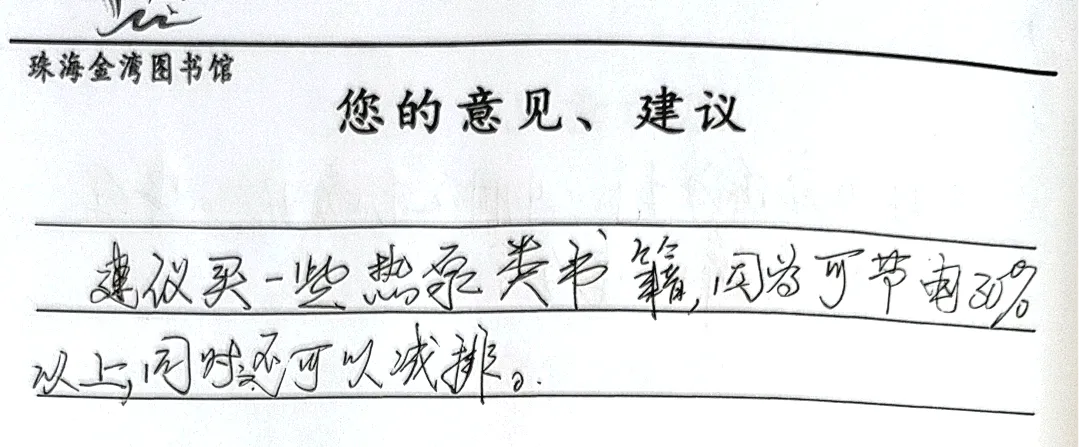 珠海金湾图书馆
您的意见、建议
建议买一些热泵类书籍,因为可节电30%
以上,同时还可以减排。